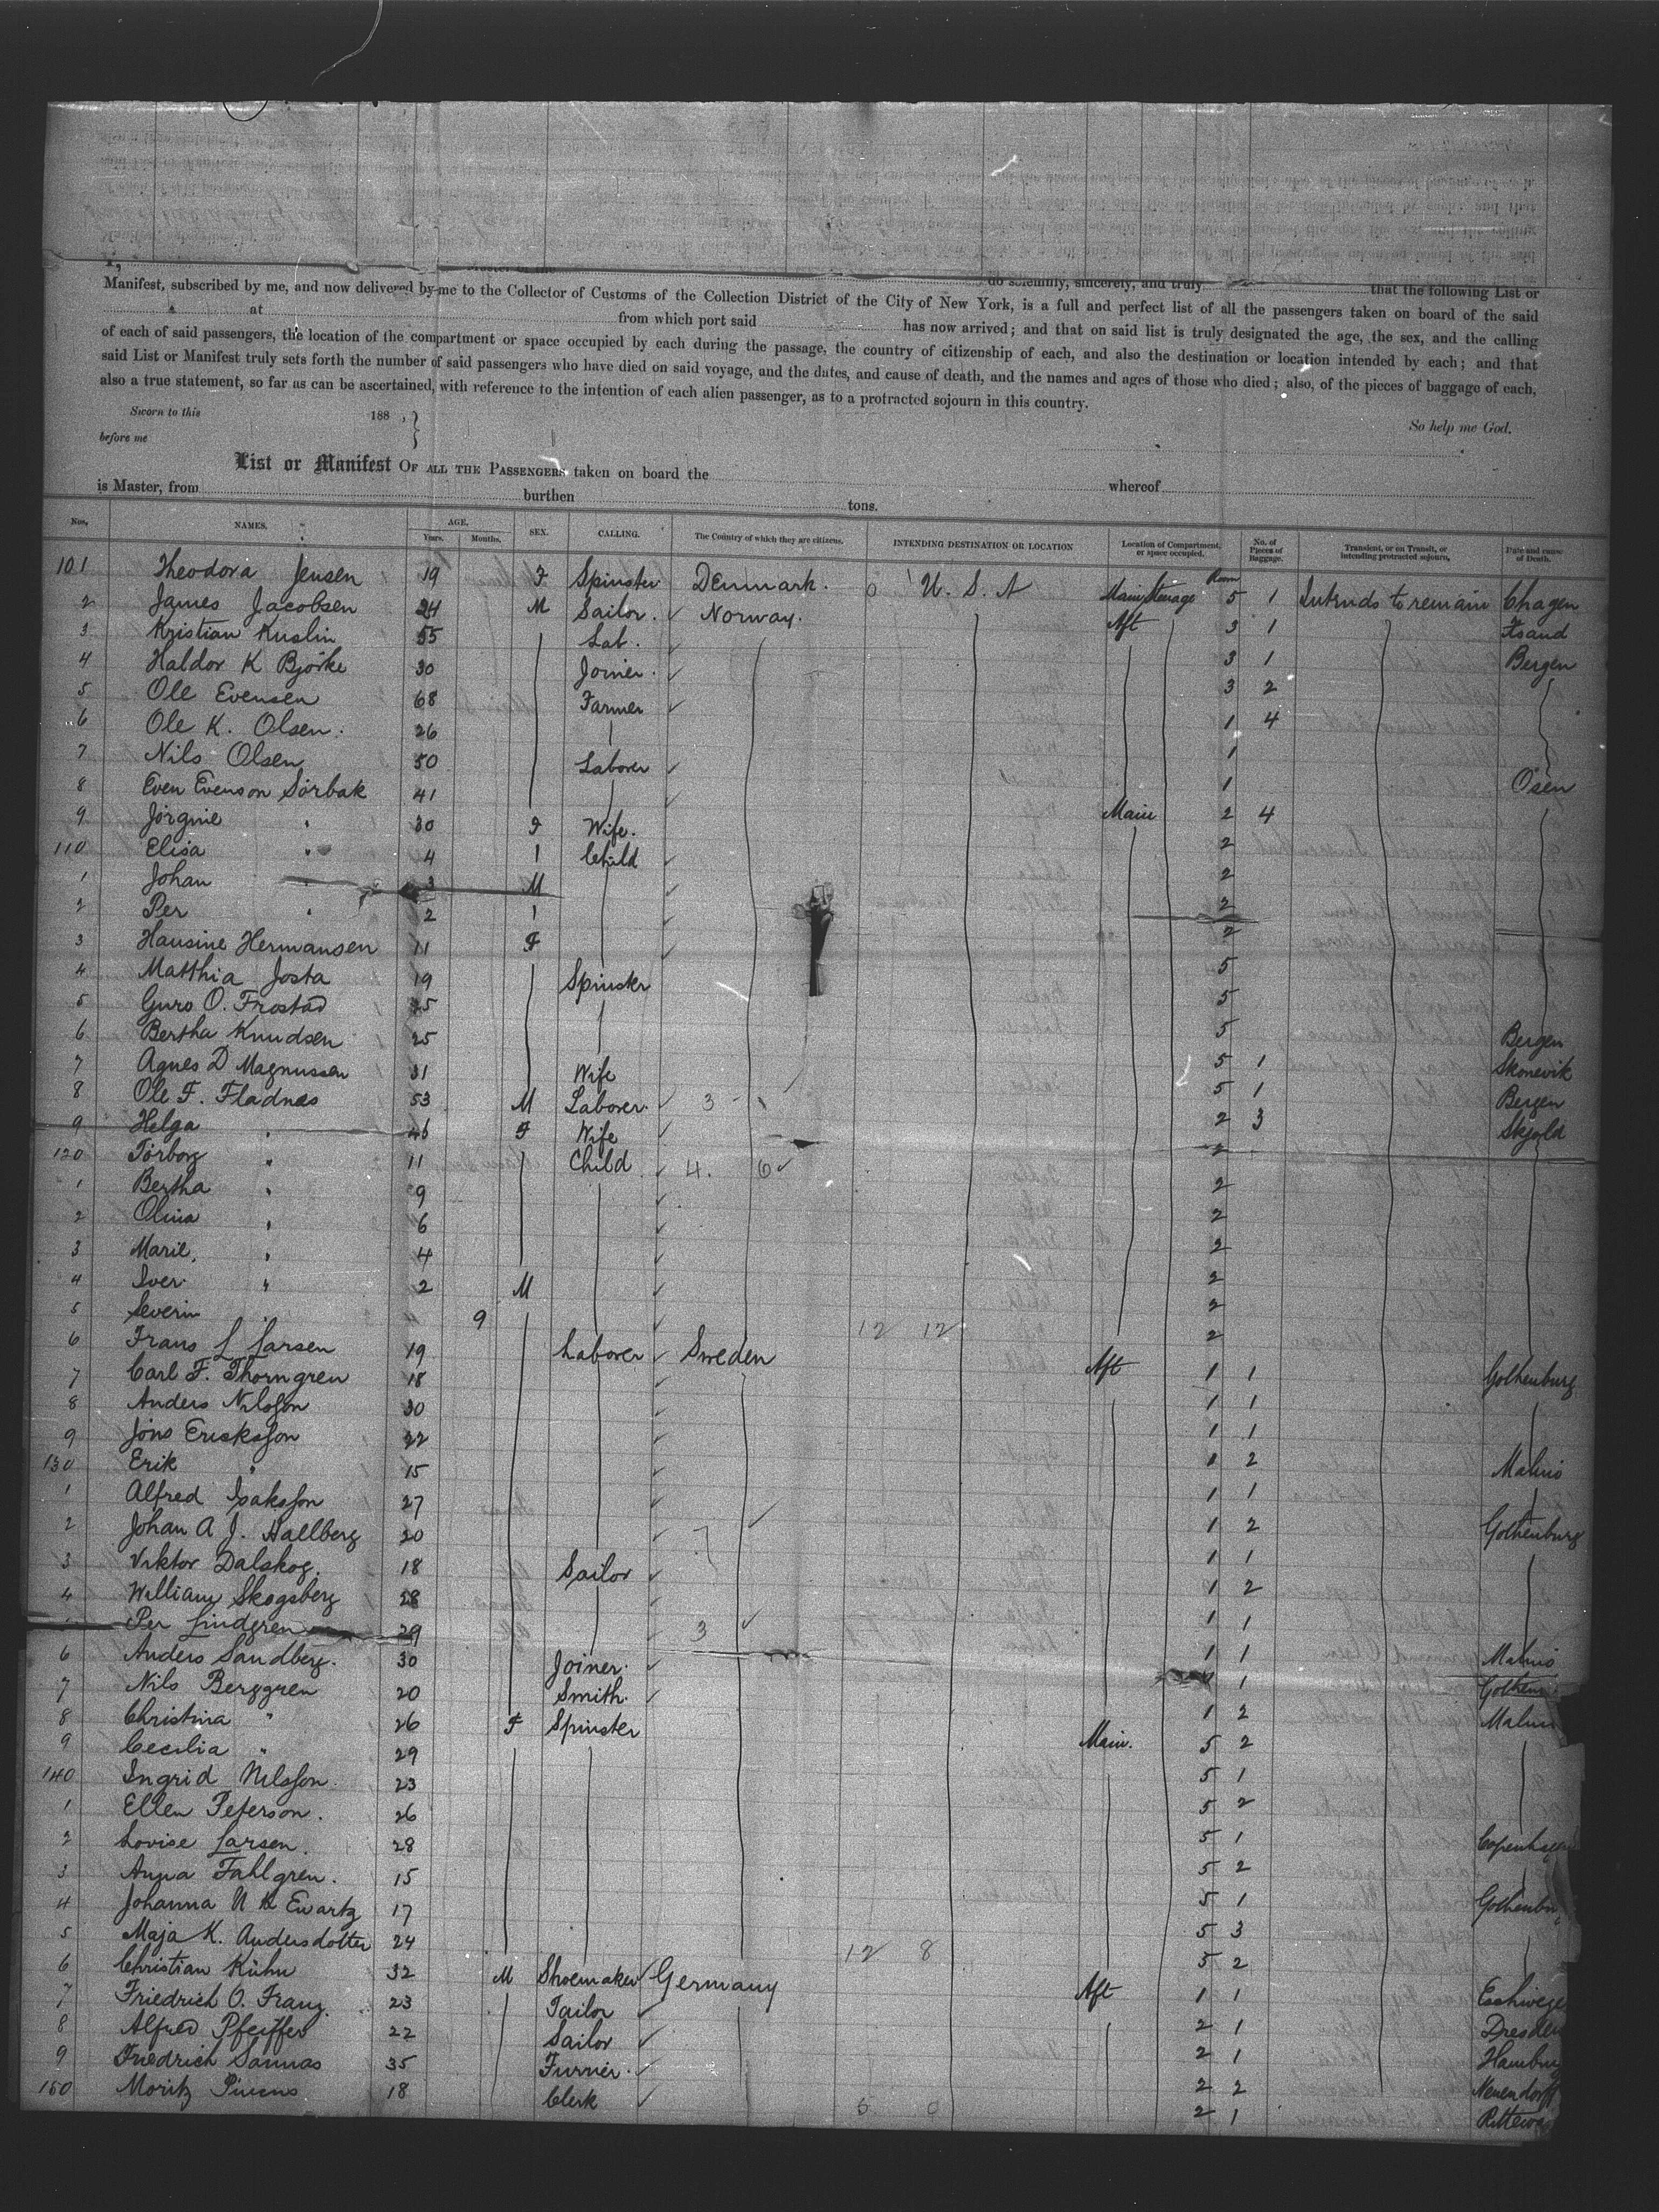 do solemnly, sincerely, and truly that the following List or
Manifest, subscribed by me, and now delivered by me to the Collector of Customs of the Collection District of the City of New York, is a full and perfect list of all the passengers taken on board of the said
at from which port said has now arrived; and that on said list is truly designated the age, the sex, and the calling
of each of said passengers, the location of the compartment or space occupied by each during the passage, the country of citizenship of each, and also the destination or location intended by each; and that
said List or Manifest truly sets forth the number of said passengers who have died on said voyage, and the dates, and cause of death, and the names and ages of those who died; also, of the pieces of baggage of each,
also a true statement, so far as can be ascertained, with reference to the intention of each alien passenger, as to a protracted sojourn in this country.
Sworn to this 188 , } So help me God.
before me
List or Manifest OF ALL THE PASSENGERS taken on board the whereof
is Master, from burthen tons.
Nos. NAMES. AGE. Years. Months. SEX. CALLING. The Country of which they are citizens. INTENDING DESTINATION OR LOCATION Location of Compartment or space occupied. No. of Pieces of Baggage. Transient, or on Transit, or intending protracted sojourn. Date and cause of Death.
101 Theodora Jensen 19 F Spinster Denmark. 0 U. S. A Main Steerage Room 5 1 Intends to remain Chagen
2 James Jacobsen 24 M Sailor. Norway. Aft 3 1 Xsand
3 Kristian Kuslin 55 Lab. 3 1 Bergen
4 Haldor K Bjorke 30 Joiner. 3 2
5 Ole Evensen 68 Farmer 1 4
6 Ole K. Olsen. 26 1
7 Nils Olsen 50 Laborer 1 Osen
8 Even Evenson Sörbak 41 Main 2 4
9 Jörgine " 30 F Wife. 2
110 Elisa " 4 Child 2
1 Johan 3 M 2
2 Per " 2 2
3 Hansine Hermansen 11 F 5
4 Matthia Josta 19 Spinster 5
5 Guro O. Frostad 25 5 Bergen
6 Bertha Knudsen 25 5 1 Skonevik
7 Agnes D Magnussen 31 Wife 5 1 Bergen
8 Ole F. Fladnas 53 M Laborer. 3 2 3 Skjold
9 Helga " 46 F Wife 2
120 Torborg " 11 Child 4. 6 2
1 Bertha " 9 2
2 Olina " 6 2
3 Marie, " 4 2
4 Iver. " 2 M 2
5 Severin 9 12 12 2
6 Frans L Larsen 19 Laborer Sweden Aft 1 1 Gothenburg
7 Carl F. Thorngren 18 1 1
8 Anders Nilsson 30 1 1
9 Jöns Ericksson 22 1 2 Malmö
130 Erik " 15 1 1
1 Alfred Isaksson 27 1 2 Gothenburg
2 Johan A J. Hallberg 20 7 1 1
3 Viktor Dalskog. 18 Sailor 1 2
4 William Skogsberg 28 1 1
Per Lindgren 29 3 1 1 Malmö
6 Anders Sandberg. 30 Joiner. 1 Gothenb
7 Nils Berggren 20 Smith. 1 2 Malmö
8 Christina " 26 F Spinster Main. 5 2
9 Cecilia " 29 5 1
140 Ingrid Nilsson. 23 5 2
1 Ellen Peterson. 26 5 1 Copenhagen
2 Lovise Larsen. 28 5 2
3 Anna Fahlgren. 15 5 1 Gothenbu
4 Johanna U K Ewartz 17 5 3
5 Maja K. Andersdotter 24 12 8 5 2
6 Christian Kühn 32 M Shoemaker Germany Aft 1 1 Eschwege
7 Friedrich O. Franz. 23 Tailor 2 1 Dresden
8 Alfred Pfeiffer 22 Sailor 2 1 Hamburg
9 Friedrich Sannas 35 Furrier. 2 2 Neuendorff
150 Moritz 18 Clerk 5 0 2 1